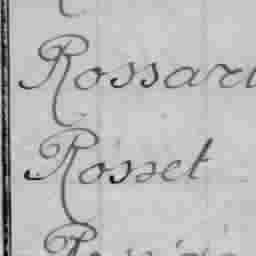 Rossari
Rosset